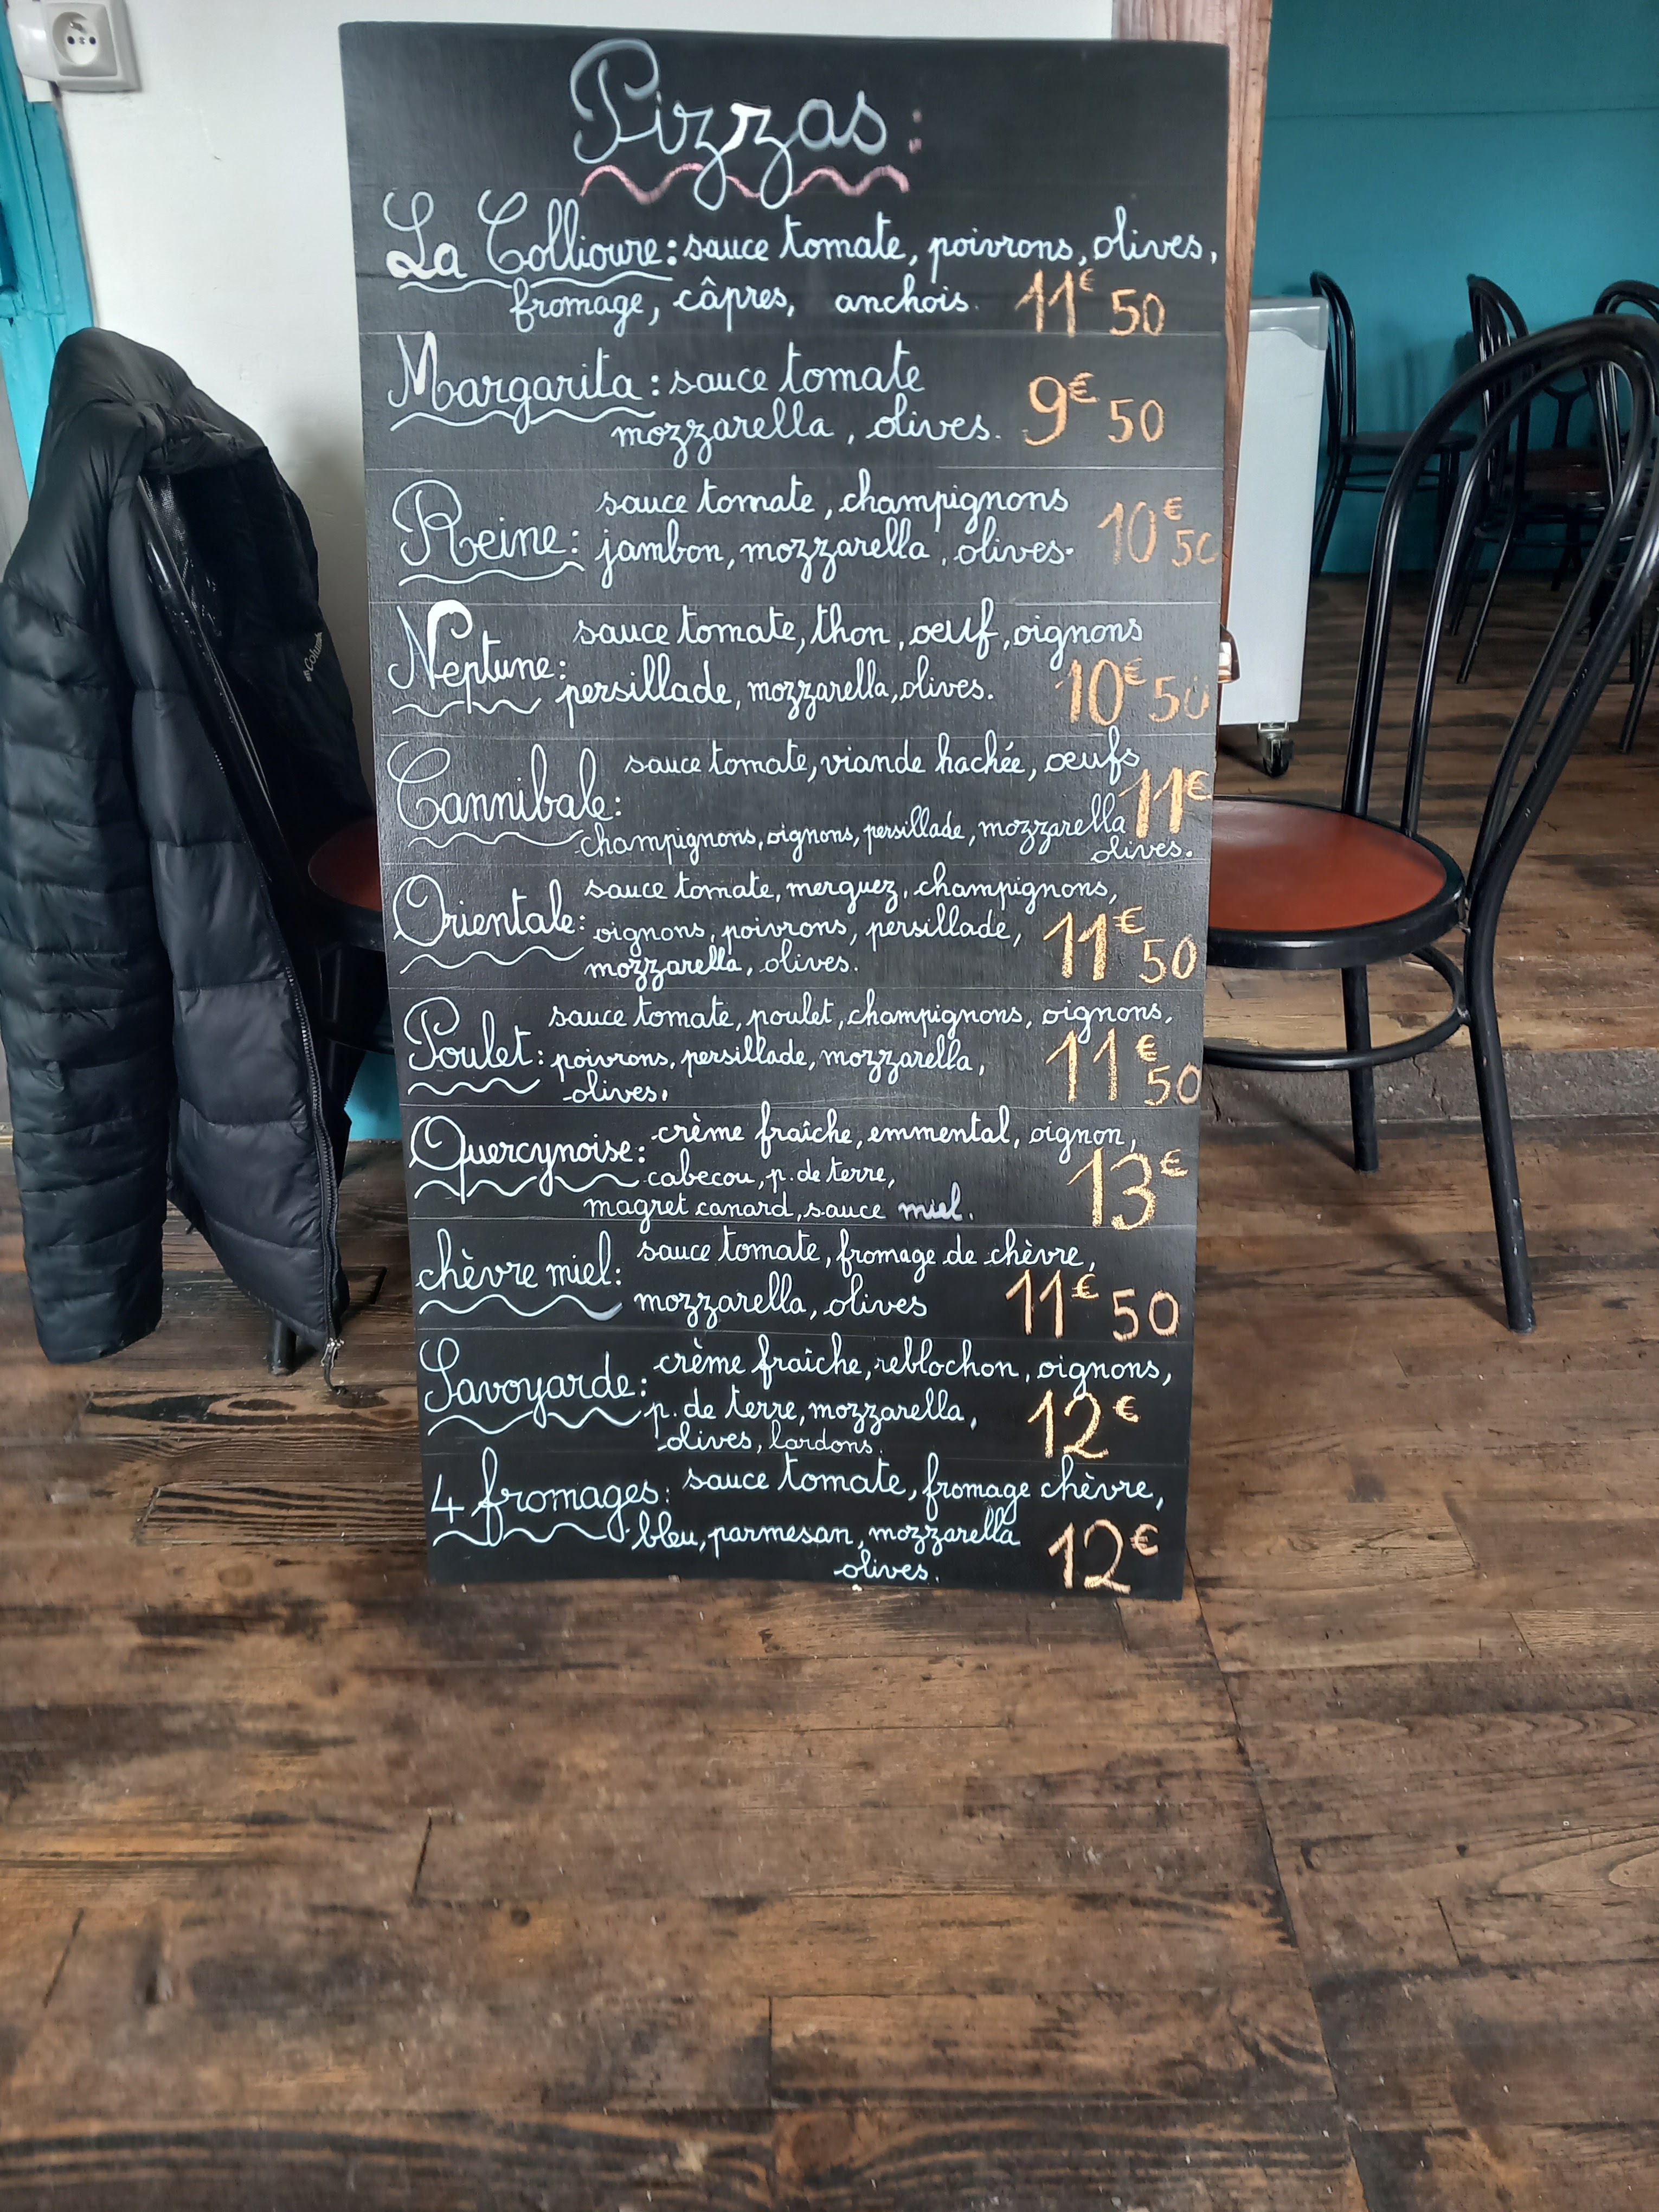 Pizzas :
La Collioure : sauce tomate, poivrons, olives,
fromage, câpres, anchois. 11€50
Margarita : sauce tomate
mozzarella, olives. 9€50
sauce tomate, champignons
Reine : jambon, mozzarella, olives. 10€50
sauce tomate, thon, oeuf, oignons
Neptune : persillade, mozzarella, olives. 10€50
sauce tomate, viande hachée, oeufs
Cannibale : 11€
champignons, oignons, persillade, mozzarella
olives.
sauce tomate, merguez, champignons,
Orientale : oignons, poivrons, persillade, 11€50
mozzarella, olives.
sauce tomate, poulet, champignons, oignons,
Poulet : poivrons, persillade, mozzarella, 11€50
olives.
Quercynoise : crème fraîche, emmental, oignon,
cabecou, p. de terre, 13€
magret canard, sauce miel.
chèvre miel : sauce tomate, fromage de chèvre,
mozzarella, olives 11€50
Savoyarde : crème fraîche, reblochon, oignons,
p. de terre, mozzarella, 12€
olives, lardons.
4 fromages : sauce tomate, fromage chèvre,
bleu, parmesan, mozzarella 12€
olives.
Columbia